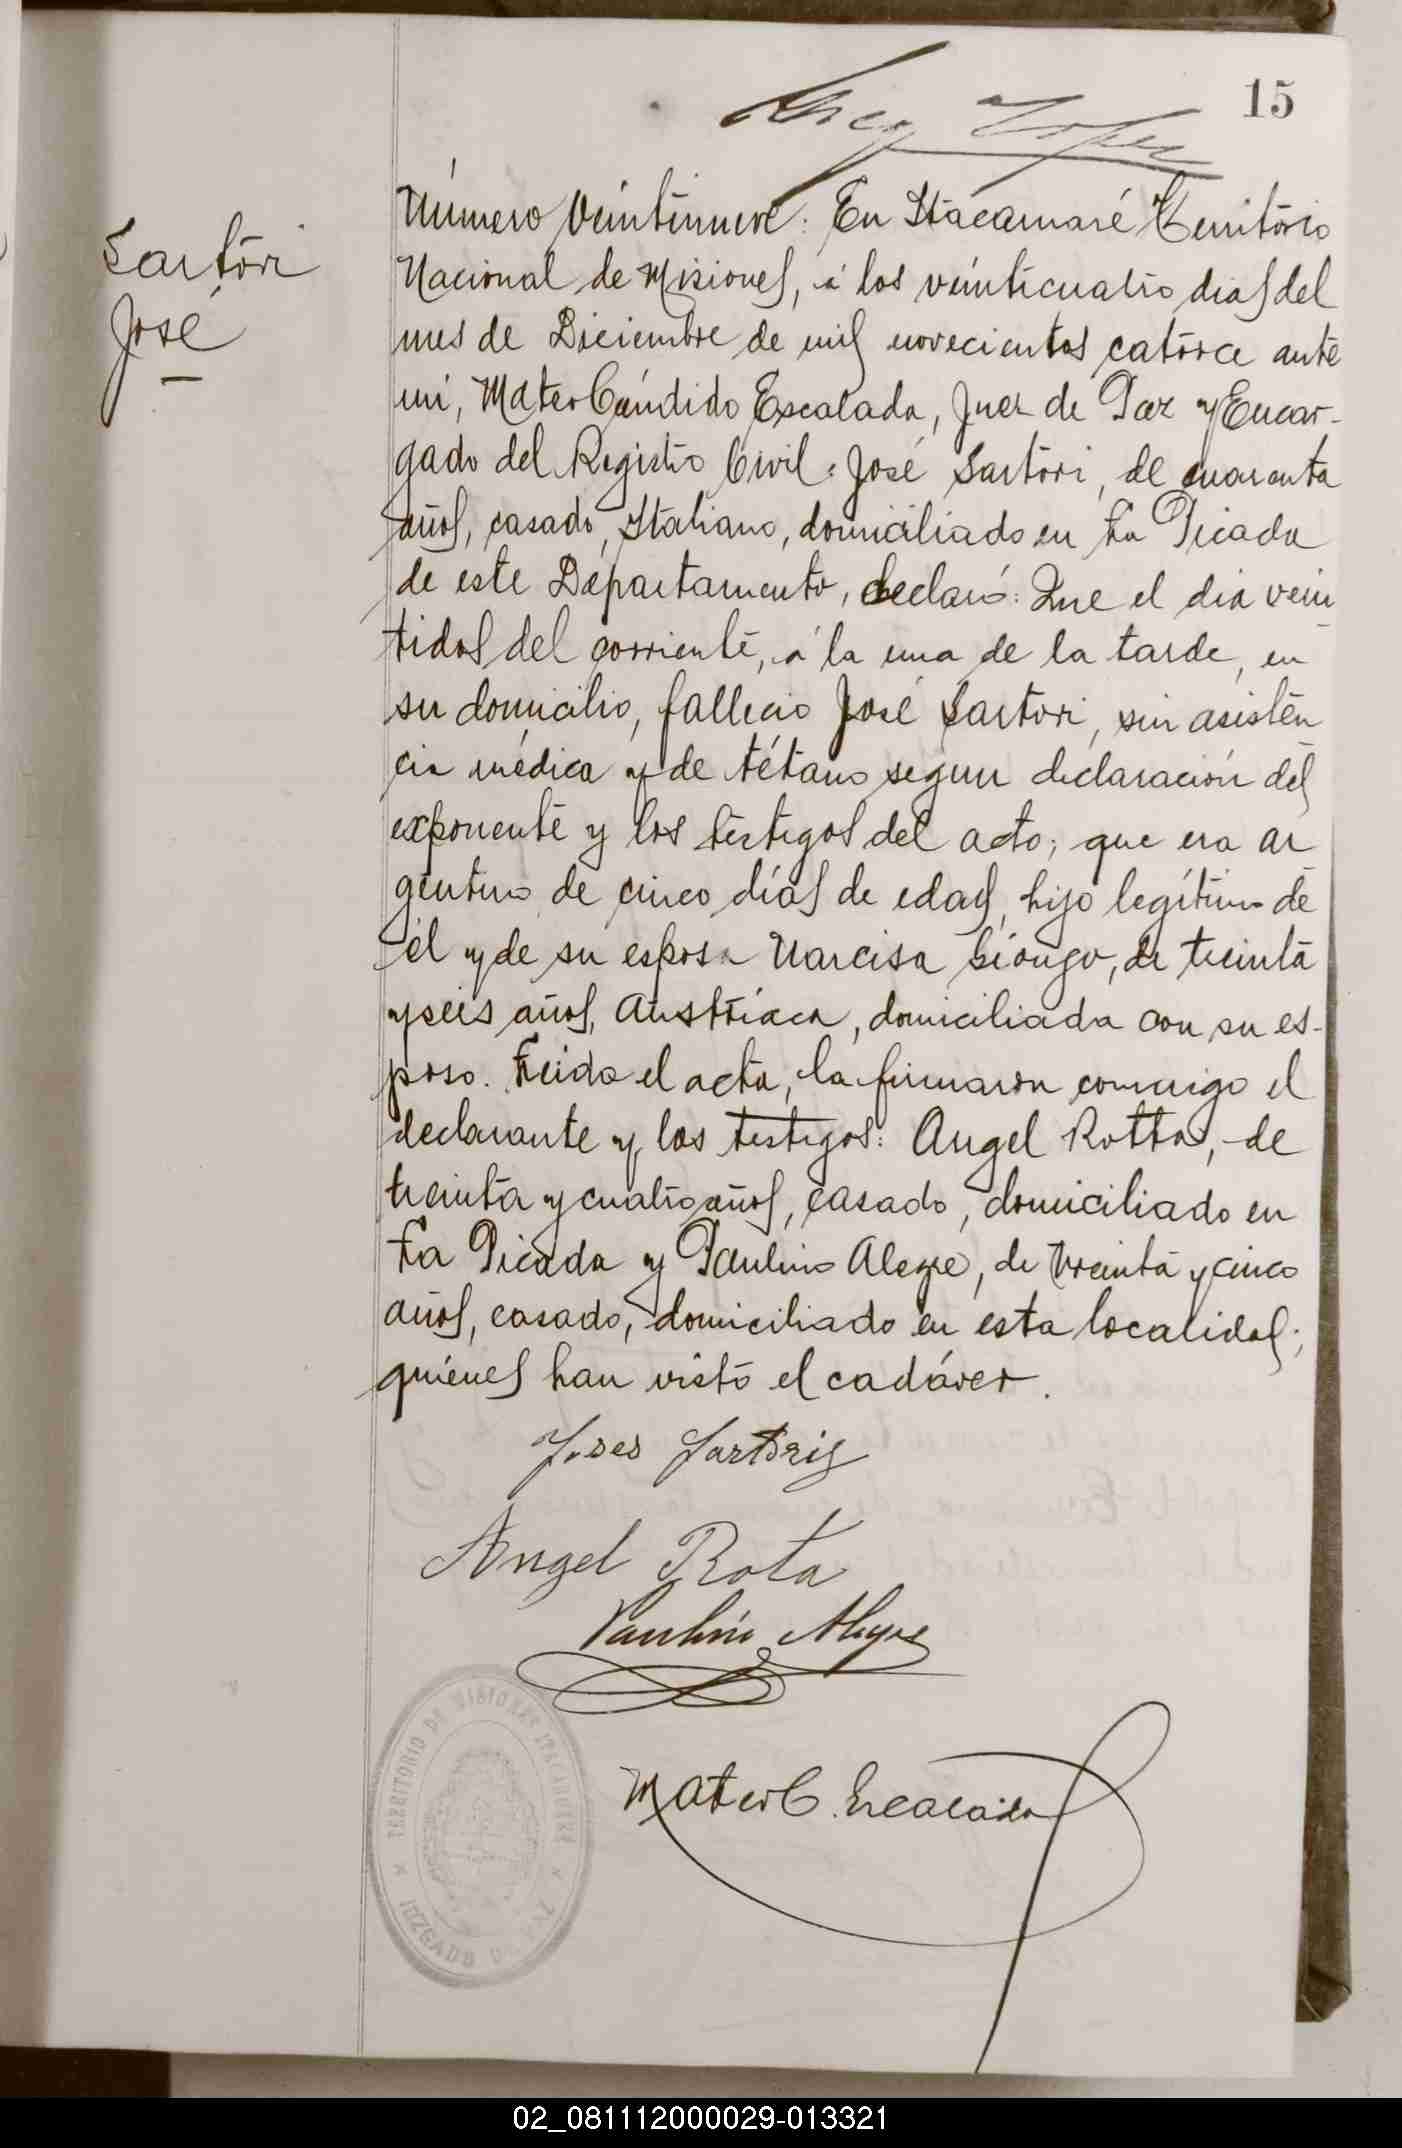 15
Sartori
José
Número Veintinueve: En Itacaruaré Territorio
Nacional de Misiones, á los veinticuatro dias del
mes de Diciembre de mil novecientos catorce ante
mí, Mateo Cándido Escalada, Juez de Paz y Encar-
gado del Registro Civil: José Sartori, de cuarenta
años, casado, Italiano, domiciliado en La Picada
de este Departamento, declaró: Que el dia vein
tidos del corriente, á la una de la tarde, en
su domicilio, falleció José Sartori, sin asisten
cia médica y de tétano segun declaración del
exponente y los testigos del acto; que era ar
gentino de cinco días de edad, hijo legítimo de
él y de su esposa Narcisa de treinta
y seis años, Austríaca, domiciliada con su es-
poso. Leida el acta, la firmaron conmigo el
declarante y los testigos: Angel Rotta, de
treinta y cuatro años, casado, domiciliado en
La Picada y Paulino Alegre, de treinta y cinco
años, casado, domiciliado en esta localidad;
quiénes han visto el cadáver.
Angel Rota
Paulino Alegre
Mateo C. Escalada
TERRITORIO DE MISIONES
JUZGADO DE PAZ
02_081112000029-013321